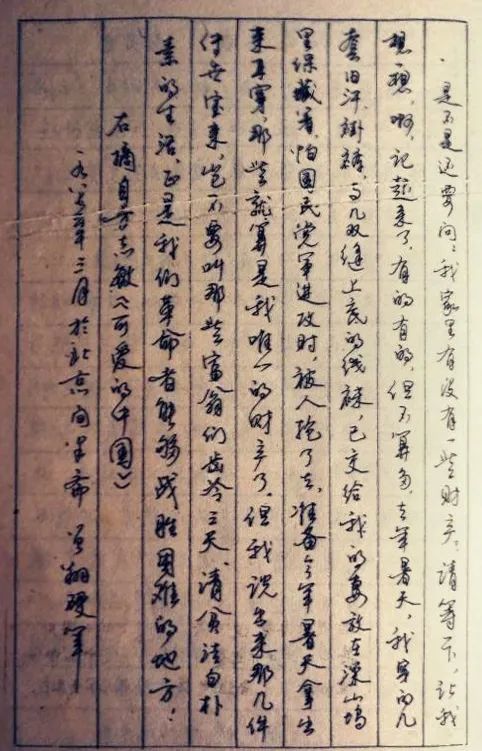 是不是还要问问我家里有没有一些财产。请等下，让我
想一想，啊，记起来了，有的有的，但不算多，去年暑天，我穿的几
套旧汗褂裤，与几双缝上底的线袜，已交给我的妻放在深山坞
里保藏着，怕国民党军进攻时，被人抢了去，准备今年暑天拿出
来再穿，那些就算是我唯一的财产了。但我说出来那几件
传世宝来，岂不要叫那些富翁们齿冷三天，清贫洁白朴
素的生活，正是我们革命者能够战胜困难的地方！
右摘自方志敏《可爱的中国》
年三月於北京 斋 翔硬笔